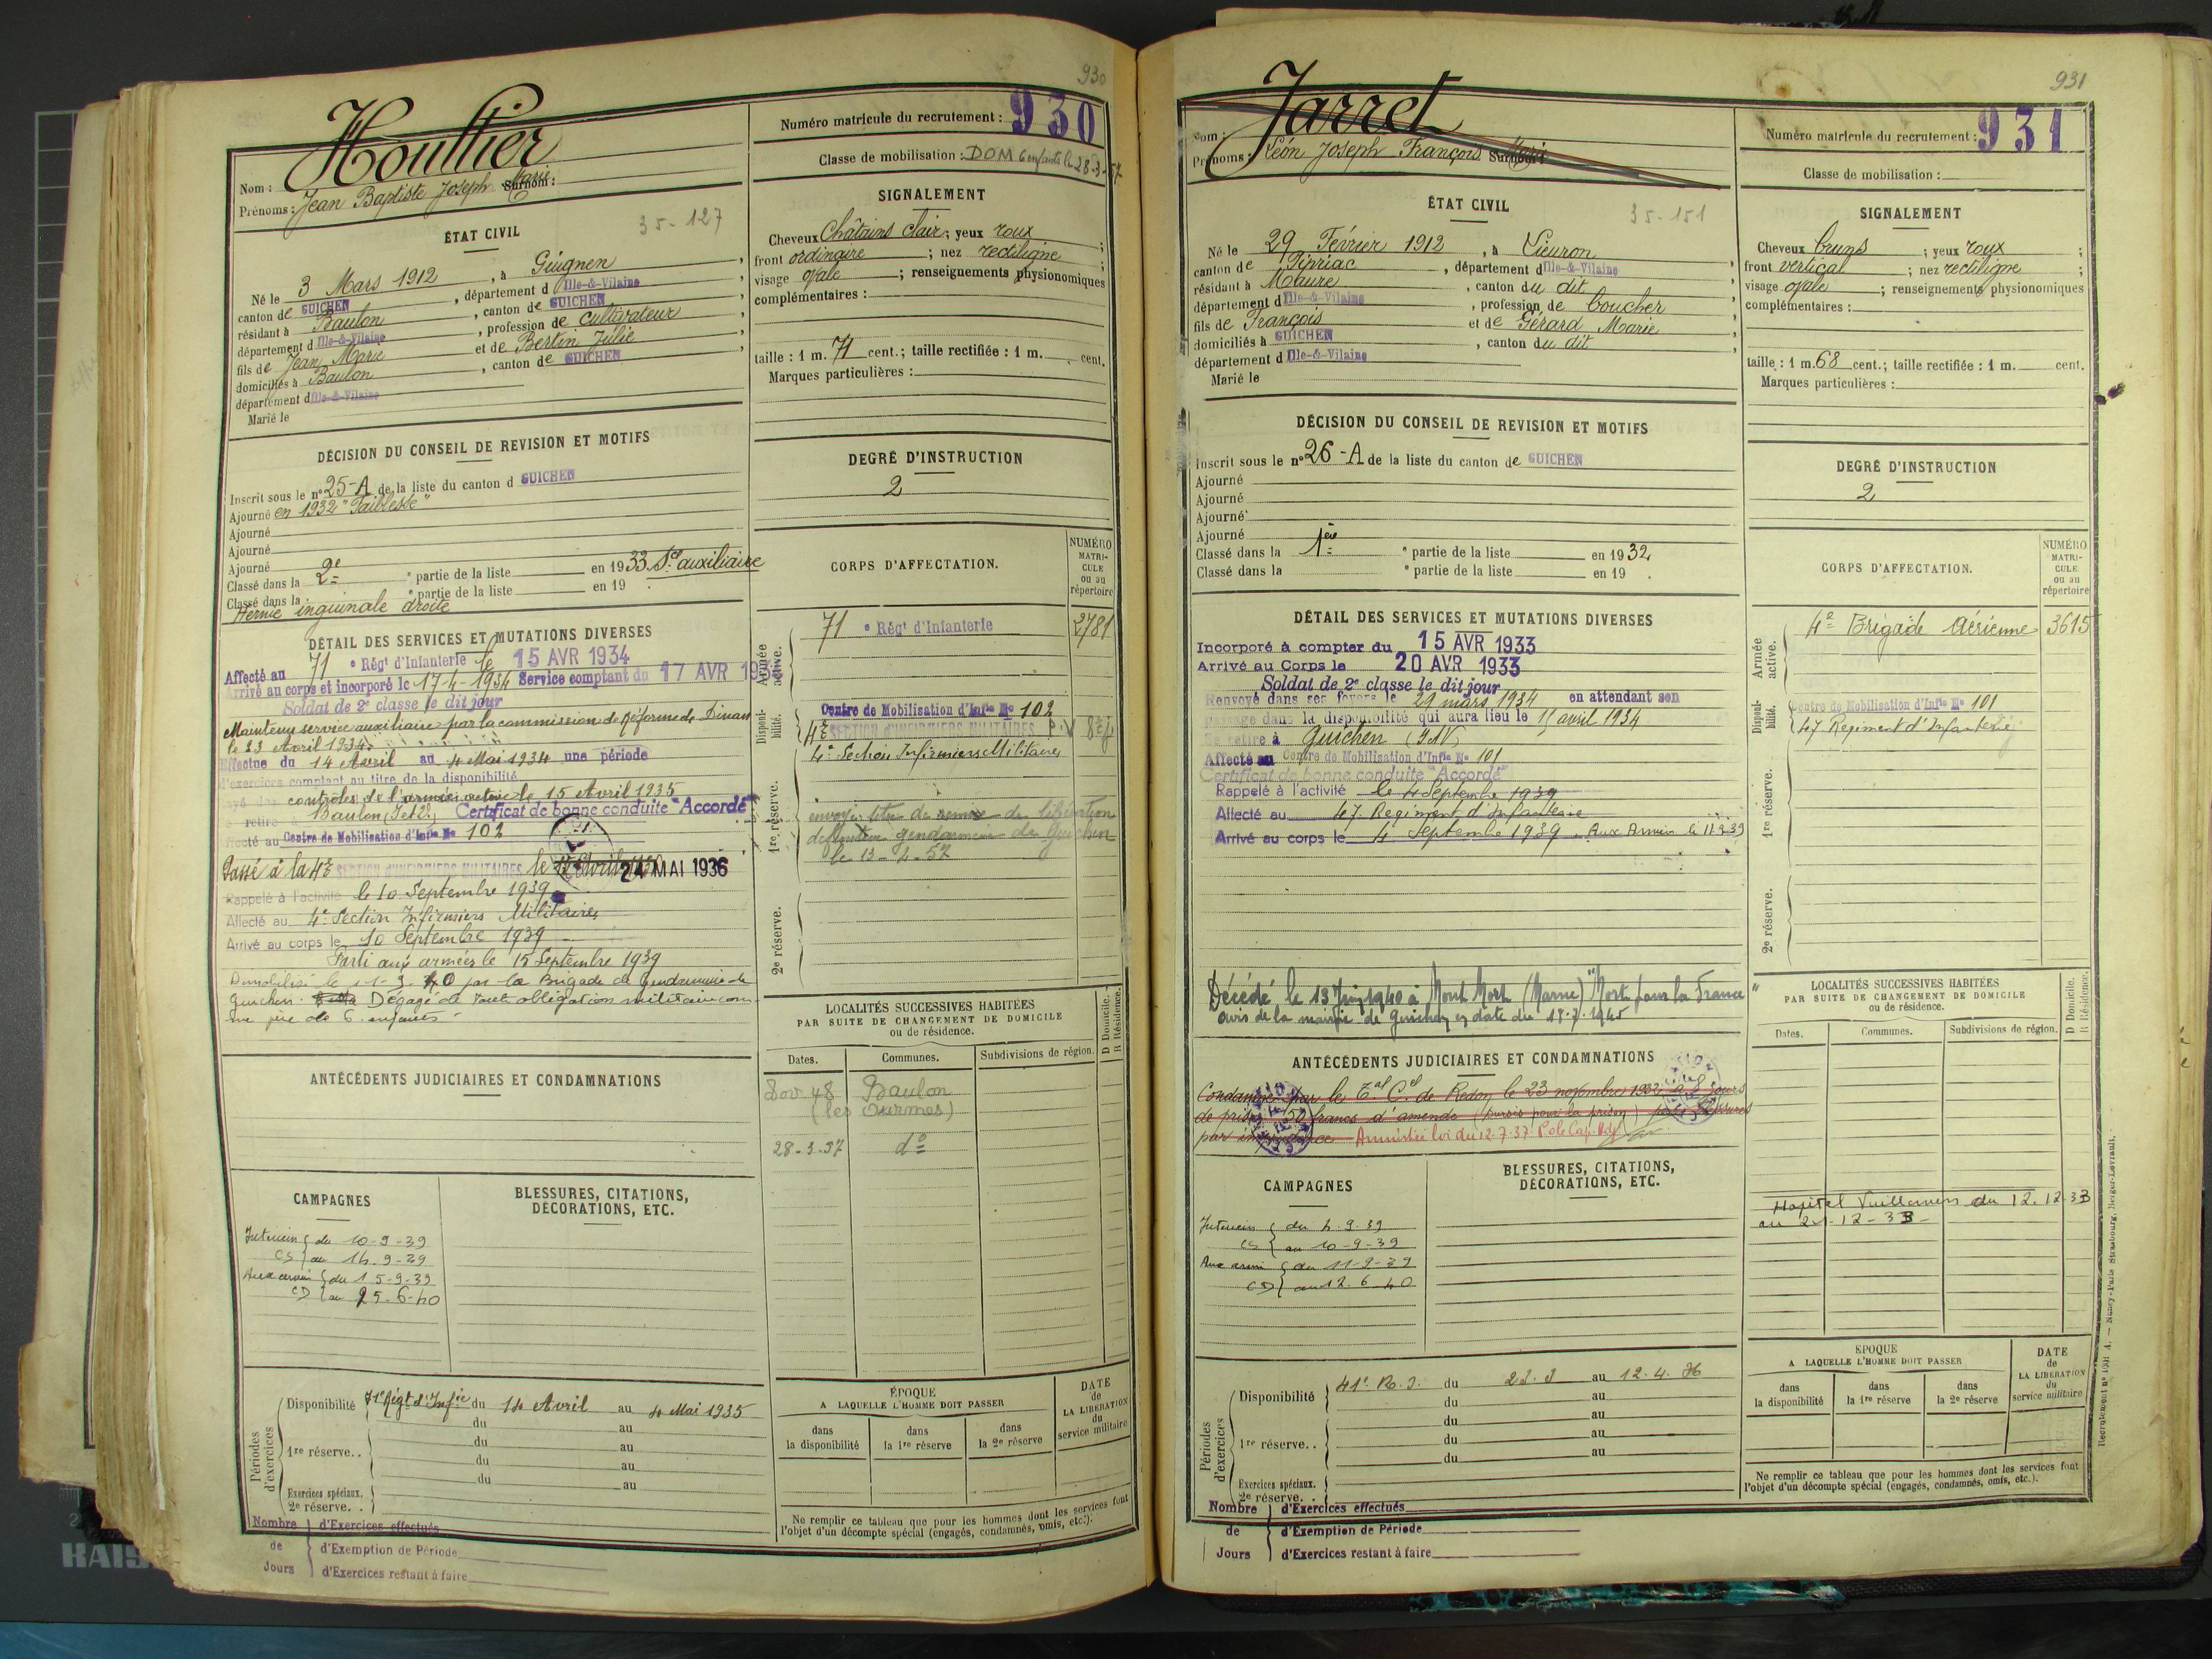 930
Houltier
Nom :
Prénoms : Jean Baptiste Joseph Marie Surnom :
35-127
ÉTAT CIVIL
Né le 3 Mars 1912, à Guignen,
canton de GUICHEN, département d Ille-&-Vilaine
résidant à Baulon, canton de GUICHEN,
département d Ille-&-Vilaine, profession de cultivateur
fils de Jean Marie et de Bertin Julie
domiciliés à Baulon, canton de GUICHEN,
département d Ille-&-Vilaine
Marié le
DÉCISION DU CONSEIL DE REVISION ET MOTIFS
Inscrit sous le n° 25-A de la liste du canton d GUICHEN
Ajourné en 1932 "Faiblesse"
Ajourné
Ajourné
Ajourné
Classé dans la 2e ° partie de la liste en 1933 Sce auxiliaire
Classé dans la ° partie de la liste en 19
Hernie inguinale droite
DÉTAIL DES SERVICES ET MUTATIONS DIVERSES
Affecté au 71 e Régt d'Infanterie le 15 AVR 1934
Arrivé au corps et incorporé le 17-4-1934 Service comptant du 17 AVR 1934
Soldat de 2e classe le dit jour
Maintenu service auxiliaire par la commission de Réforme de Dinan
le 23 Avril 1934.
Effectue du 14 Avril au 4 Mai 1934 une période
d'exercices comptant au titre de la disponibilité
contrôles de l'armée active le 15 Avril 1935
retire à Baulon (I et V) Certificat de bonne conduite "Accordé"
Affecté au Centre de Mobilisation d'Infie No 102
Passé à la 4e SECTION D'INFIRMIERS MILITAIRES le 24 MAI 1936
Rappelé à l'activité le 10 Septembre 1939
Affecté au 4e Section Infirmiers Militaires
Arrivé au corps le 10 Septembre 1939
Parti aux armées le 15 Septembre 1939
Démobilisé le 1-3-40 par la Brigade de Gendarmerie de
Guichen. Dégagé de toute obligation militaire com
me père de 6 enfants -
ANTÉCÉDENTS JUDICIAIRES ET CONDAMNATIONS
CAMPAGNES
Intérieur du 10-9-39
CS au 14-9-39
Aux armées du 15-9-39
CD au 25-6-40
BLESSURES, CITATIONS,
DÉCORATIONS, ETC.
Périodes d'exercices
Disponibilité 71e Régt d'Infie du 14 Avril au 4 Mai 1935
du au
1re réserve.. du au
du au
du au
Exercices spéciaux.
2e réserve. .
Nombre d'Exercices effectués
de d'Exemption de Période
Jours d'Exercices restant à faire
Numéro matricule du recrutement : 930
Classe de mobilisation : DOM 6 enfants le 28-3-57
SIGNALEMENT
Cheveux Châtains clair ; yeux roux ;
front ordinaire ; nez rectiligne ;
visage ovale ; renseignements physionomiques
complémentaires :
taille : 1 m. 71 cent.; taille rectifiée : 1 m. cent.
Marques particulières :
DEGRÉ D'INSTRUCTION
2
CORPS D'AFFECTATION.
NUMÉRO MATRICULE ou au répertoire
Armée active.
71 e Régt d'Infanterie 2781
Disponibilité.
Centre de Mobilisation d'Infie No 102
4e SECTION D'INFIRMIERS MILITAIRES
4e Section Infirmiers Militaires
1re réserve.
envoyé titre de remise de libération
définitive gendarmerie de Guichen
le 13-4-57
2e réserve.
LOCALITÉS SUCCESSIVES HABITÉES
PAR SUITE DE CHANGEMENT DE DOMICILE
ou de résidence.
D Domicile.
R Résidence.
Dates. Communes. Subdivisions de région.
48 Baulon
(les Ourmes)
28-3-57 do
ÉPOQUE
A LAQUELLE L'HOMME DOIT PASSER
DATE de LA LIBÉRATION du service militaire
dans la disponibilité
dans la 1re réserve
dans la 2e réserve
Ne remplir ce tableau que pour les hommes dont les services font
l'objet d'un décompte spécial (engagés, condamnés, omis, etc.).
931
Jarret
Nom :
Prénoms : Léon Joseph François Marie Surnom :
35-151
ÉTAT CIVIL
Né le 29 Février 1912, à Lieuron
canton de Pipriac, département d Ille-&-Vilaine
résidant à Maure, canton du dit,
département d Ille-&-Vilaine, profession de boucher
fils de François et de Gérard Marie
domiciliés à GUICHEN, canton du dit
département d Ille-&-Vilaine
Marié le
DÉCISION DU CONSEIL DE REVISION ET MOTIFS
Inscrit sous le n° 26-A de la liste du canton de GUICHEN
Ajourné
Ajourné
Ajourné
Ajourné
Classé dans la 1ère ° partie de la liste en 1932
Classé dans la ° partie de la liste en 19 .
DÉTAIL DES SERVICES ET MUTATIONS DIVERSES
Incorporé à compter du 15 AVR 1933
Arrivé au Corps le 20 AVR 1933
Soldat de 2e classe le dit jour
Renvoyé dans ses foyers le 29 mars 1934 en attendant son
passage dans la disponibilité qui aura lieu le 15 avril 1934
Se retire à Guichen (I&V)
Affecté au Centre de Mobilisation d'Infie No 101
Certificat de bonne conduite "Accordé"
Rappelé à l'activité le 4 Septembre 1939
Affecté au 47. Régiment d'Infanterie
Arrivé au corps le 4 Septembre 1939. Aux Armées le 11.9.39
Décédé le 13 Juin 1940 à Mont Mort (Marne) "Mort pour la France"
avis de la mairie de Guichen en date du 17.7.1945
ANTÉCÉDENTS JUDICIAIRES ET CONDAMNATIONS
Condamné par le Tal Cel de Redon le 23 novembre 1932 à 8 jours
de prison 50 francs d'amende (sursis pour la prison) pour blessures
par imprudence Amnistiée loi du 12.7.37
CAMPAGNES
Intérieur du 4-9-39
CS au 10-9-39
Aux armées du 11-9-39
CD au 12.6.40
BLESSURES, CITATIONS,
DÉCORATIONS, ETC.
Périodes d'exercices
Disponibilité 41e R.I. du 23.3 au 12.4.36
du au
du au
1re réserve. . du au
du au
Exercices spéciaux.
2e réserve. .
Nombre d'Exercices effectués
de d'Exemption de Période
Jours d'Exercices restant à faire
Numéro matricule du recrutement : 931
Classe de mobilisation :
SIGNALEMENT
Cheveux bruns ; yeux roux ;
front vertical ; nez rectiligne ;
visage ovale ; renseignements physionomiques
complémentaires :
taille : 1 m. 68 cent.; taille rectifiée : 1 m. cent.
Marques particulières :
DEGRÉ D'INSTRUCTION
2
CORPS D'AFFECTATION.
NUMÉRO MATRICULE ou au répertoire
Armée active.
4e Brigade Aérienne 3615
Disponibilité.
Centre de Mobilisation d'Infie No 101
47 Régiment d'Infanterie
1re réserve.
2e réserve.
LOCALITÉS SUCCESSIVES HABITÉES
PAR SUITE DE CHANGEMENT DE DOMICILE
ou de résidence.
D Domicile.
R Résidence.
Dates. Communes. Subdivisions de région.
Hôpital Vuillemin du 12.12.33
au 21-12-33-
ÉPOQUE
A LAQUELLE L'HOMME DOIT PASSER
DATE de LA LIBÉRATION du service militaire
dans la disponibilité
dans la 1re réserve
dans la 2e réserve
Ne remplir ce tableau que pour les hommes dont les services font
l'objet d'un décompte spécial (engagés, condamnés, omis, etc.).